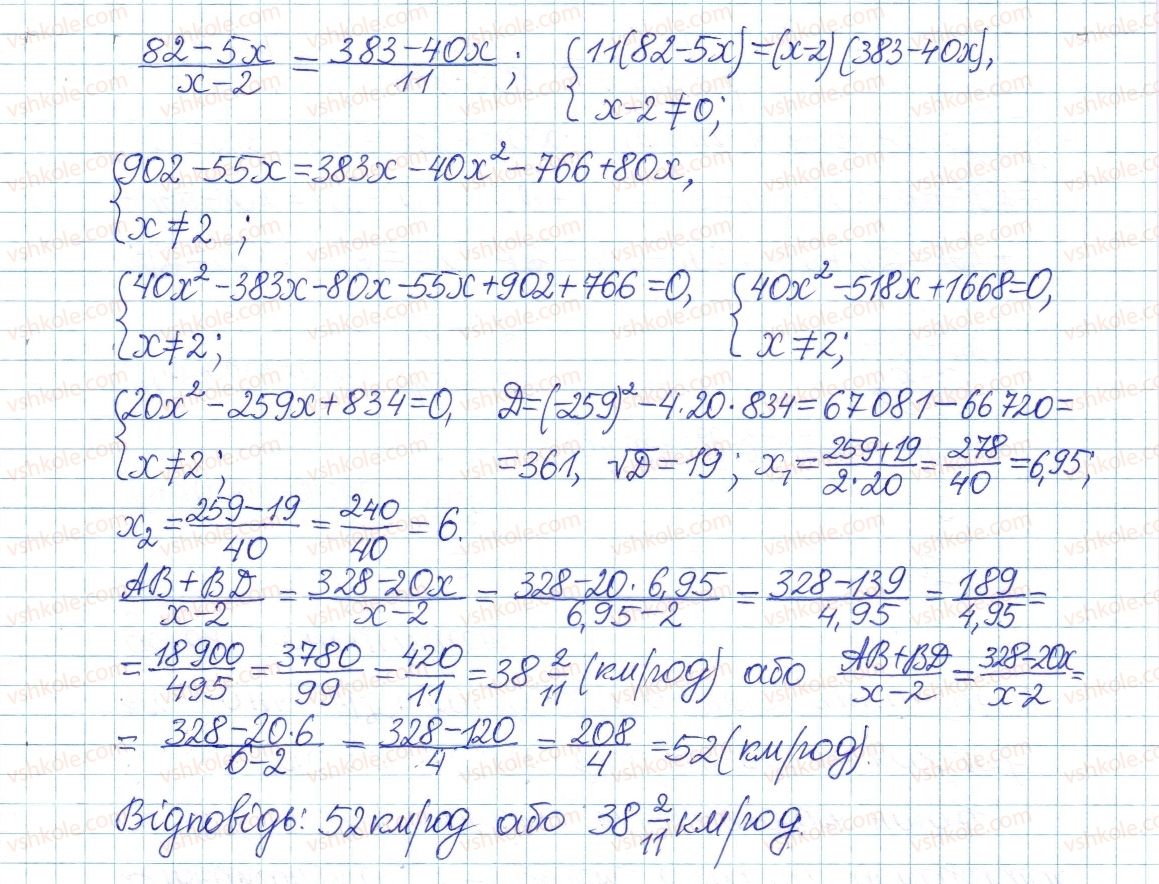 (82−5x)/(x−2) = (383−40x)/11 ; { 11(82−5x)=(x−2)(383−40x),
x−2≠0;
{ 902−55x=383x−40x²−766+80x,
x≠2 ;
{ 40x²−383x−80x−55x+902+766=0, { 40x²−518x+1668=0,
x≠2; x≠2;
{ 20x²−259x+834=0, D=(−259)²−4·20·834=67081−66720=
x≠2; =361, √D=19; x₁=(259+19)/(2·20)=278/40=6,95;
x₂=(259−19)/40=240/40=6.
(AB+BD)/(x−2)=(328−20x)/(x−2)=(328−20·6,95)/(6,95−2)=(328−139)/4,95=189/4,95=
=18900/495=3780/99=420/11=38 2/11 (км/год) або (AB+BD)/(x−2)=(328−20x)/(x−2)=
=(328−20·6)/(6−2)=(328−120)/4=208/4=52(км/год).
Відповідь: 52км/год або 38 2/11 км/год.